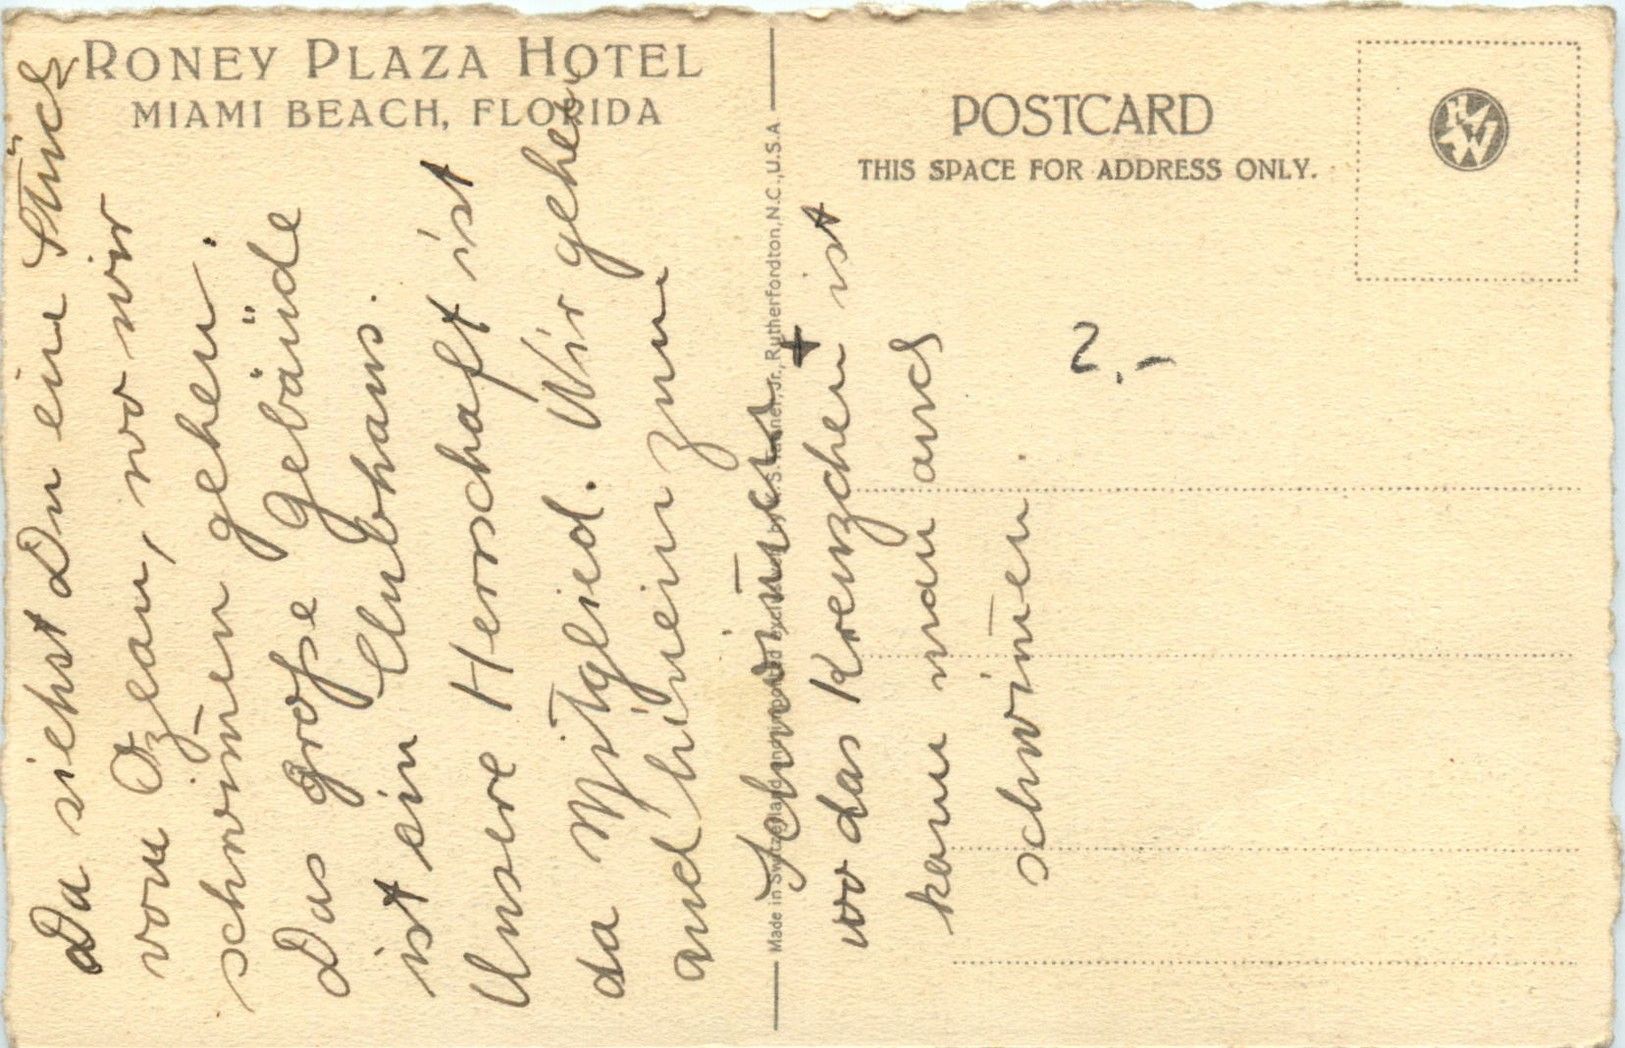 RONEY PLAZA HOTEL
MIAMI BEACH, FLORIDA
POSTCARD
THIS SPACE FOR ADDRESS ONLY.
Da siehst Du ein Stück
vom Ozean, wo wir
schwim̄en gehen.
Das große Gebäude
ist ein Clubhaus.
Unsere Herrschaft ist
da Mitglied. Wir gehen
auch hinein zum
Schwim̄en +
wo das Kreuzchen ist
kann man auch
schwim̄en.
2.-
Made in Switzerland Jr., Rutherfordton, N.C., U.S.A